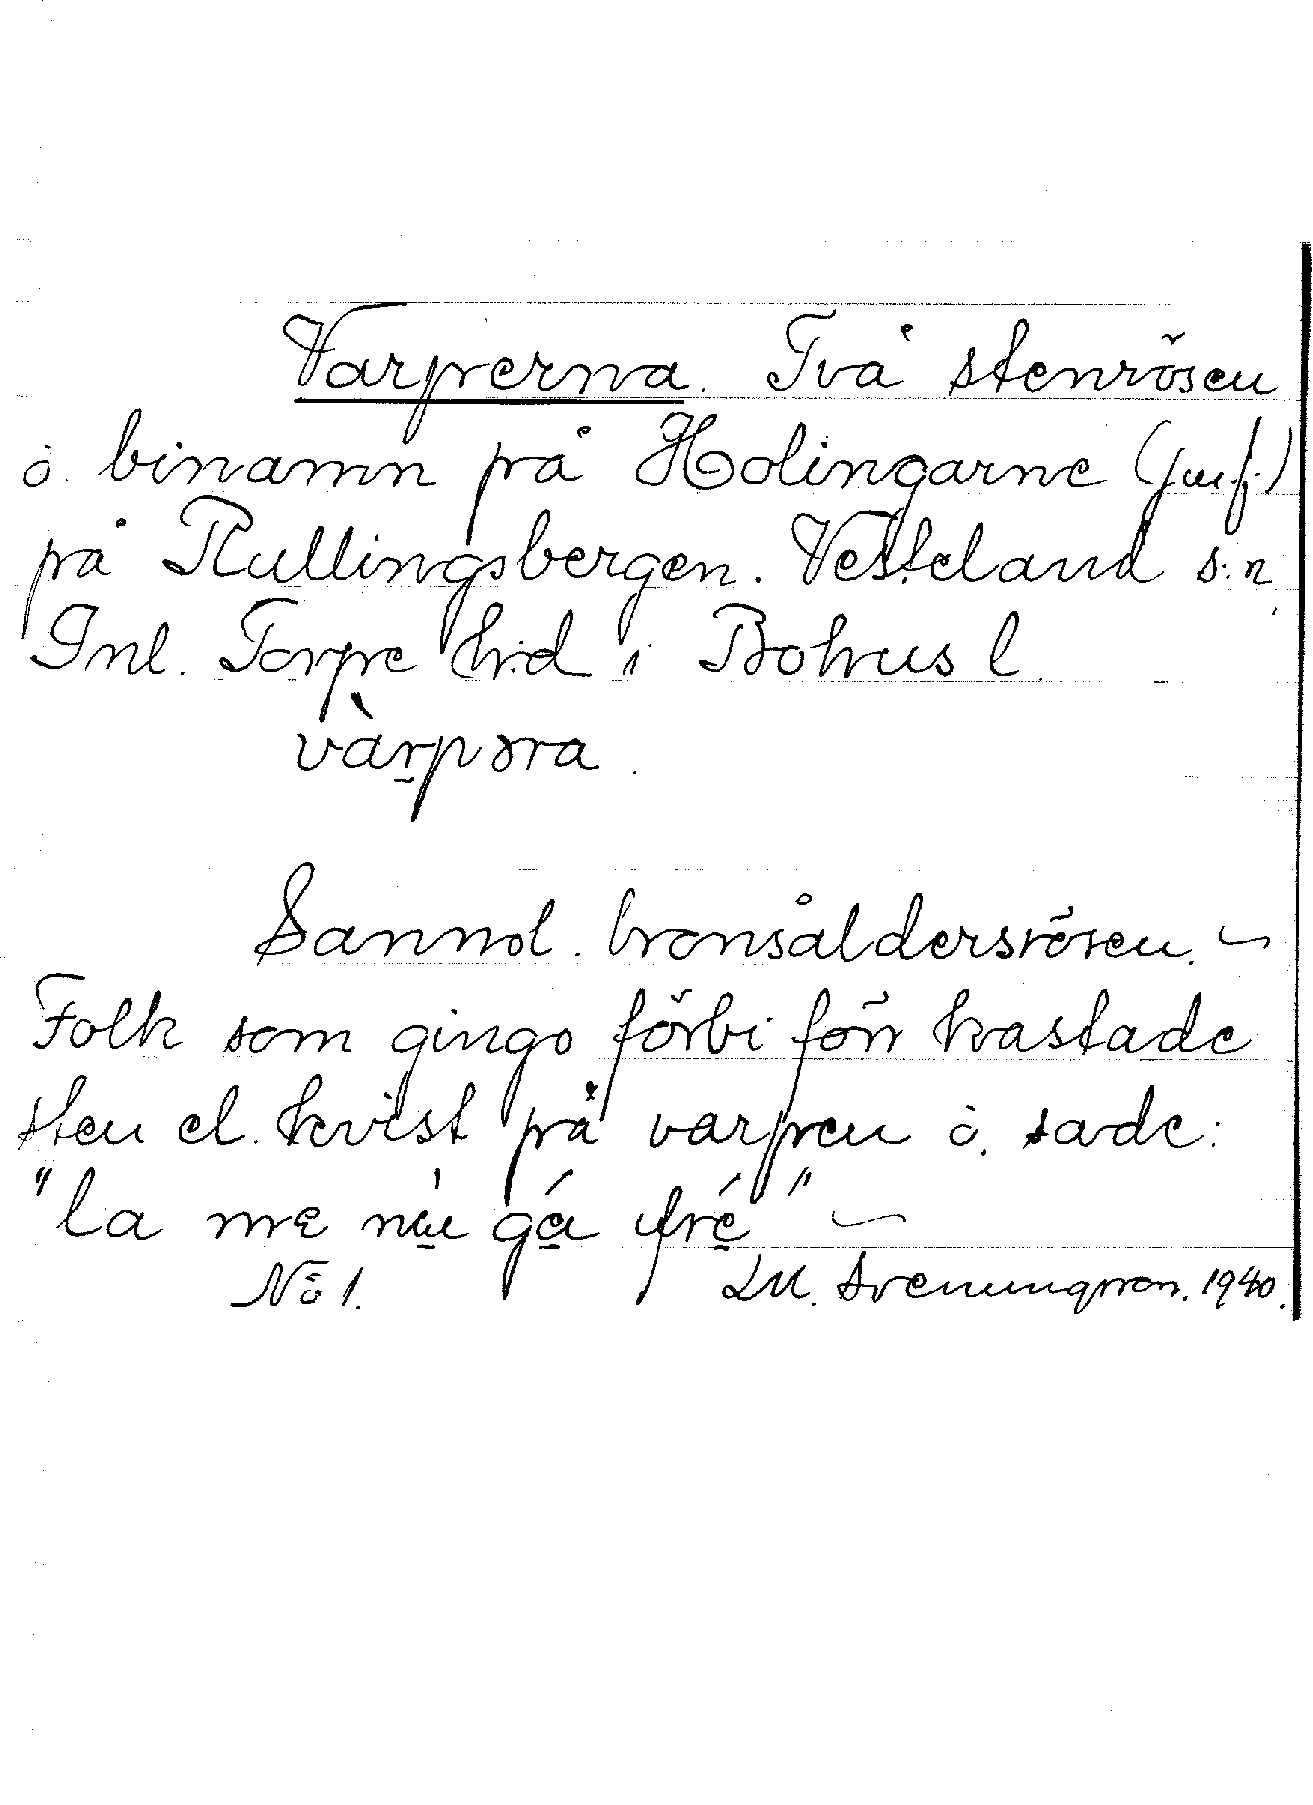 Varperna. Två stenrösen
o. binamn på Holingarne (jmf.)
på Rullingsbergen. Vesteland s:n
Inl. Torpe h:d i Bohusl.
vàrpəra.
Sannol. bronsåldersrösen. –
Folk som gingo förbi förr kastade
sten el. kvist på varpen o. sade:
"la me nu gá fré" –
No 1. LM. Svenungsson. 1940.